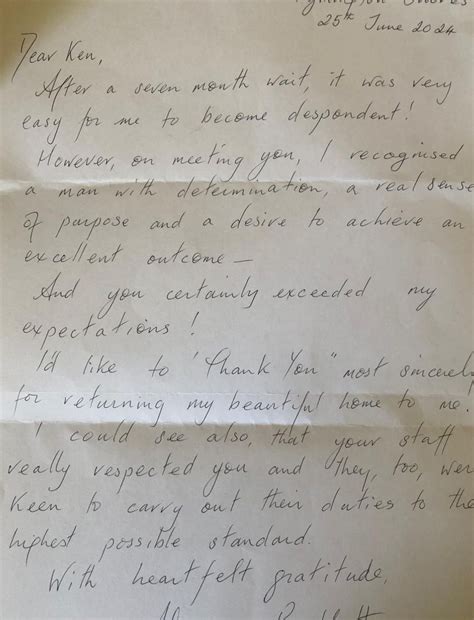 25th June 2024
Dear Ken,
After a seven month wait, it was very
easy for me to become despondent!
However, on meeting you, I recognised
a man with determination, a real sense
of purpose and a desire to achieve an
excellent outcome —
And you certainly exceeded my
expectations!
I'd like to 'Thank You" most sincerely
for returning my beautiful home to me.
I could see also, that your staff
really respected you and they, too, were
keen to carry out their duties to the
highest possible standard.
With heartfelt gratitude,